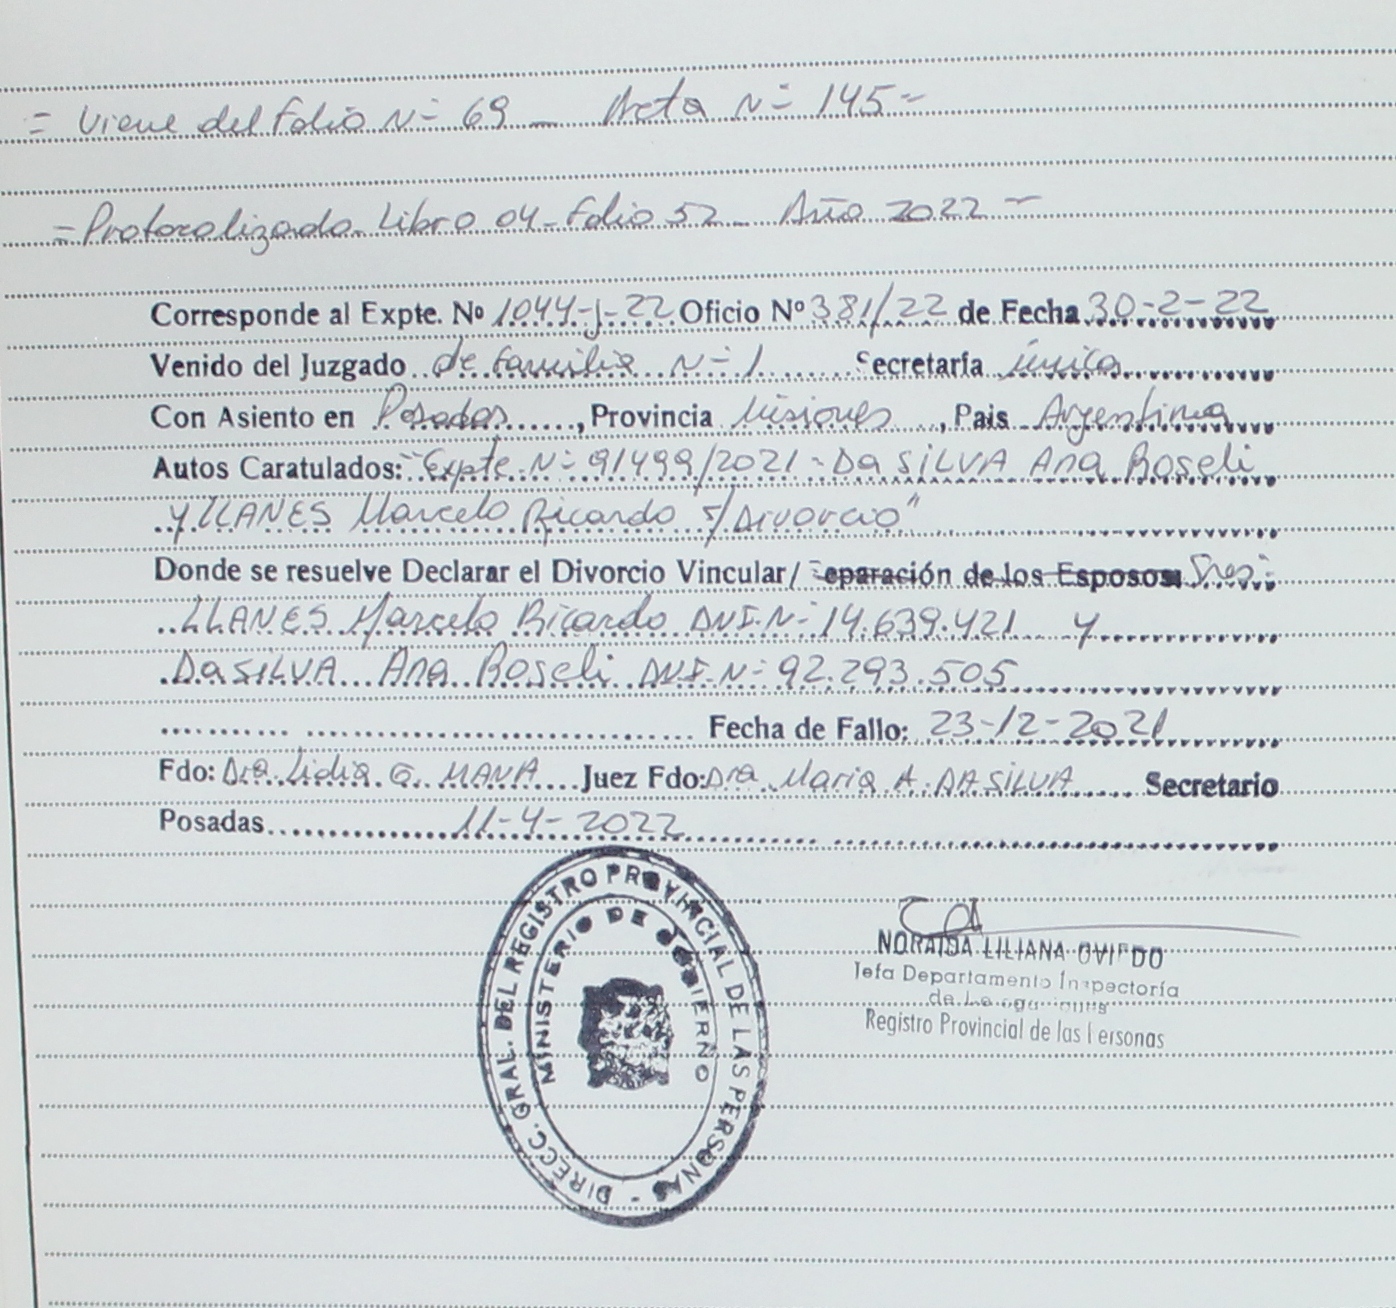 = Viene del Folio N= 69 _ Acta N= 145 =
= Protocolizado Libro 04 - Folio 52 _ Año 2022 =
Corresponde al Expte. Nº 1044-J-22 Oficio Nº 381/22 de Fecha 30-2-22
Venido del Juzgado de Familia N= 1 Secretaría única
Con Asiento en Posadas, Provincia Misiones, Pais Argentina
Autos Caratulados: "Expte N= 91499/2021 - Da SILVA Ana Roseli
y LLANES Marcelo Ricardo s/Divorcio"
Donde se resuelve Declarar el Divorcio Vincular/ Separación de los Esposos Sres:
LLANES Marcelo Ricardo DNI. N= 14.639.421 y
Da SILVA Ana Roseli DNI. N= 92.293.505
Fecha de Fallo: 23-12-2021
Fdo: Dra. Lidia G. MANA Juez Fdo: Dra Maria A. DA SILVA Secretario
Posadas 11-4-2022
DIRECC. GRAL. DEL REGISTRO PROVINCIAL DE LAS PERSONAS -
MINISTERIO DE GOBIERNO
NORAIDA LILIANA OVIEDO
Jefa Departamento Inspectoría
de
Registro Provincial de las Personas